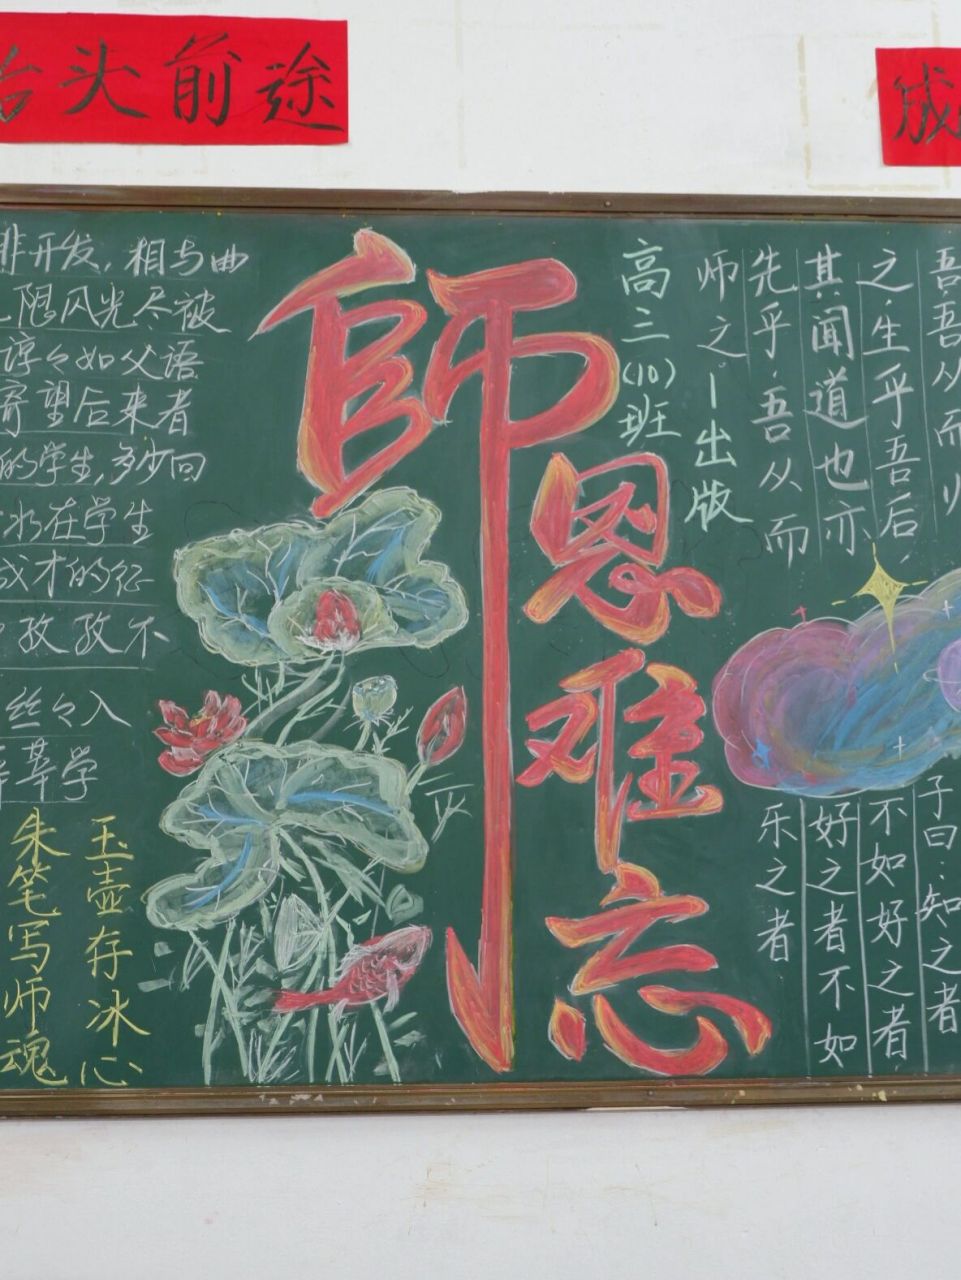 抬头前途
成
非开发，相与曲
限风光尽被
谆々如父语
寄望后来者
的学生，多少回
水在学生
成才的征
孜孜不
丝々入
莘学
玉壶存冰心
朱笔写师魂
師恩难忘
高三(10)班
出版
吾吾从而师
之.生乎吾后，
其闻道也亦
先乎.吾从而
师之。
子曰：知之者
不如好之者，
好之者不如
乐之者